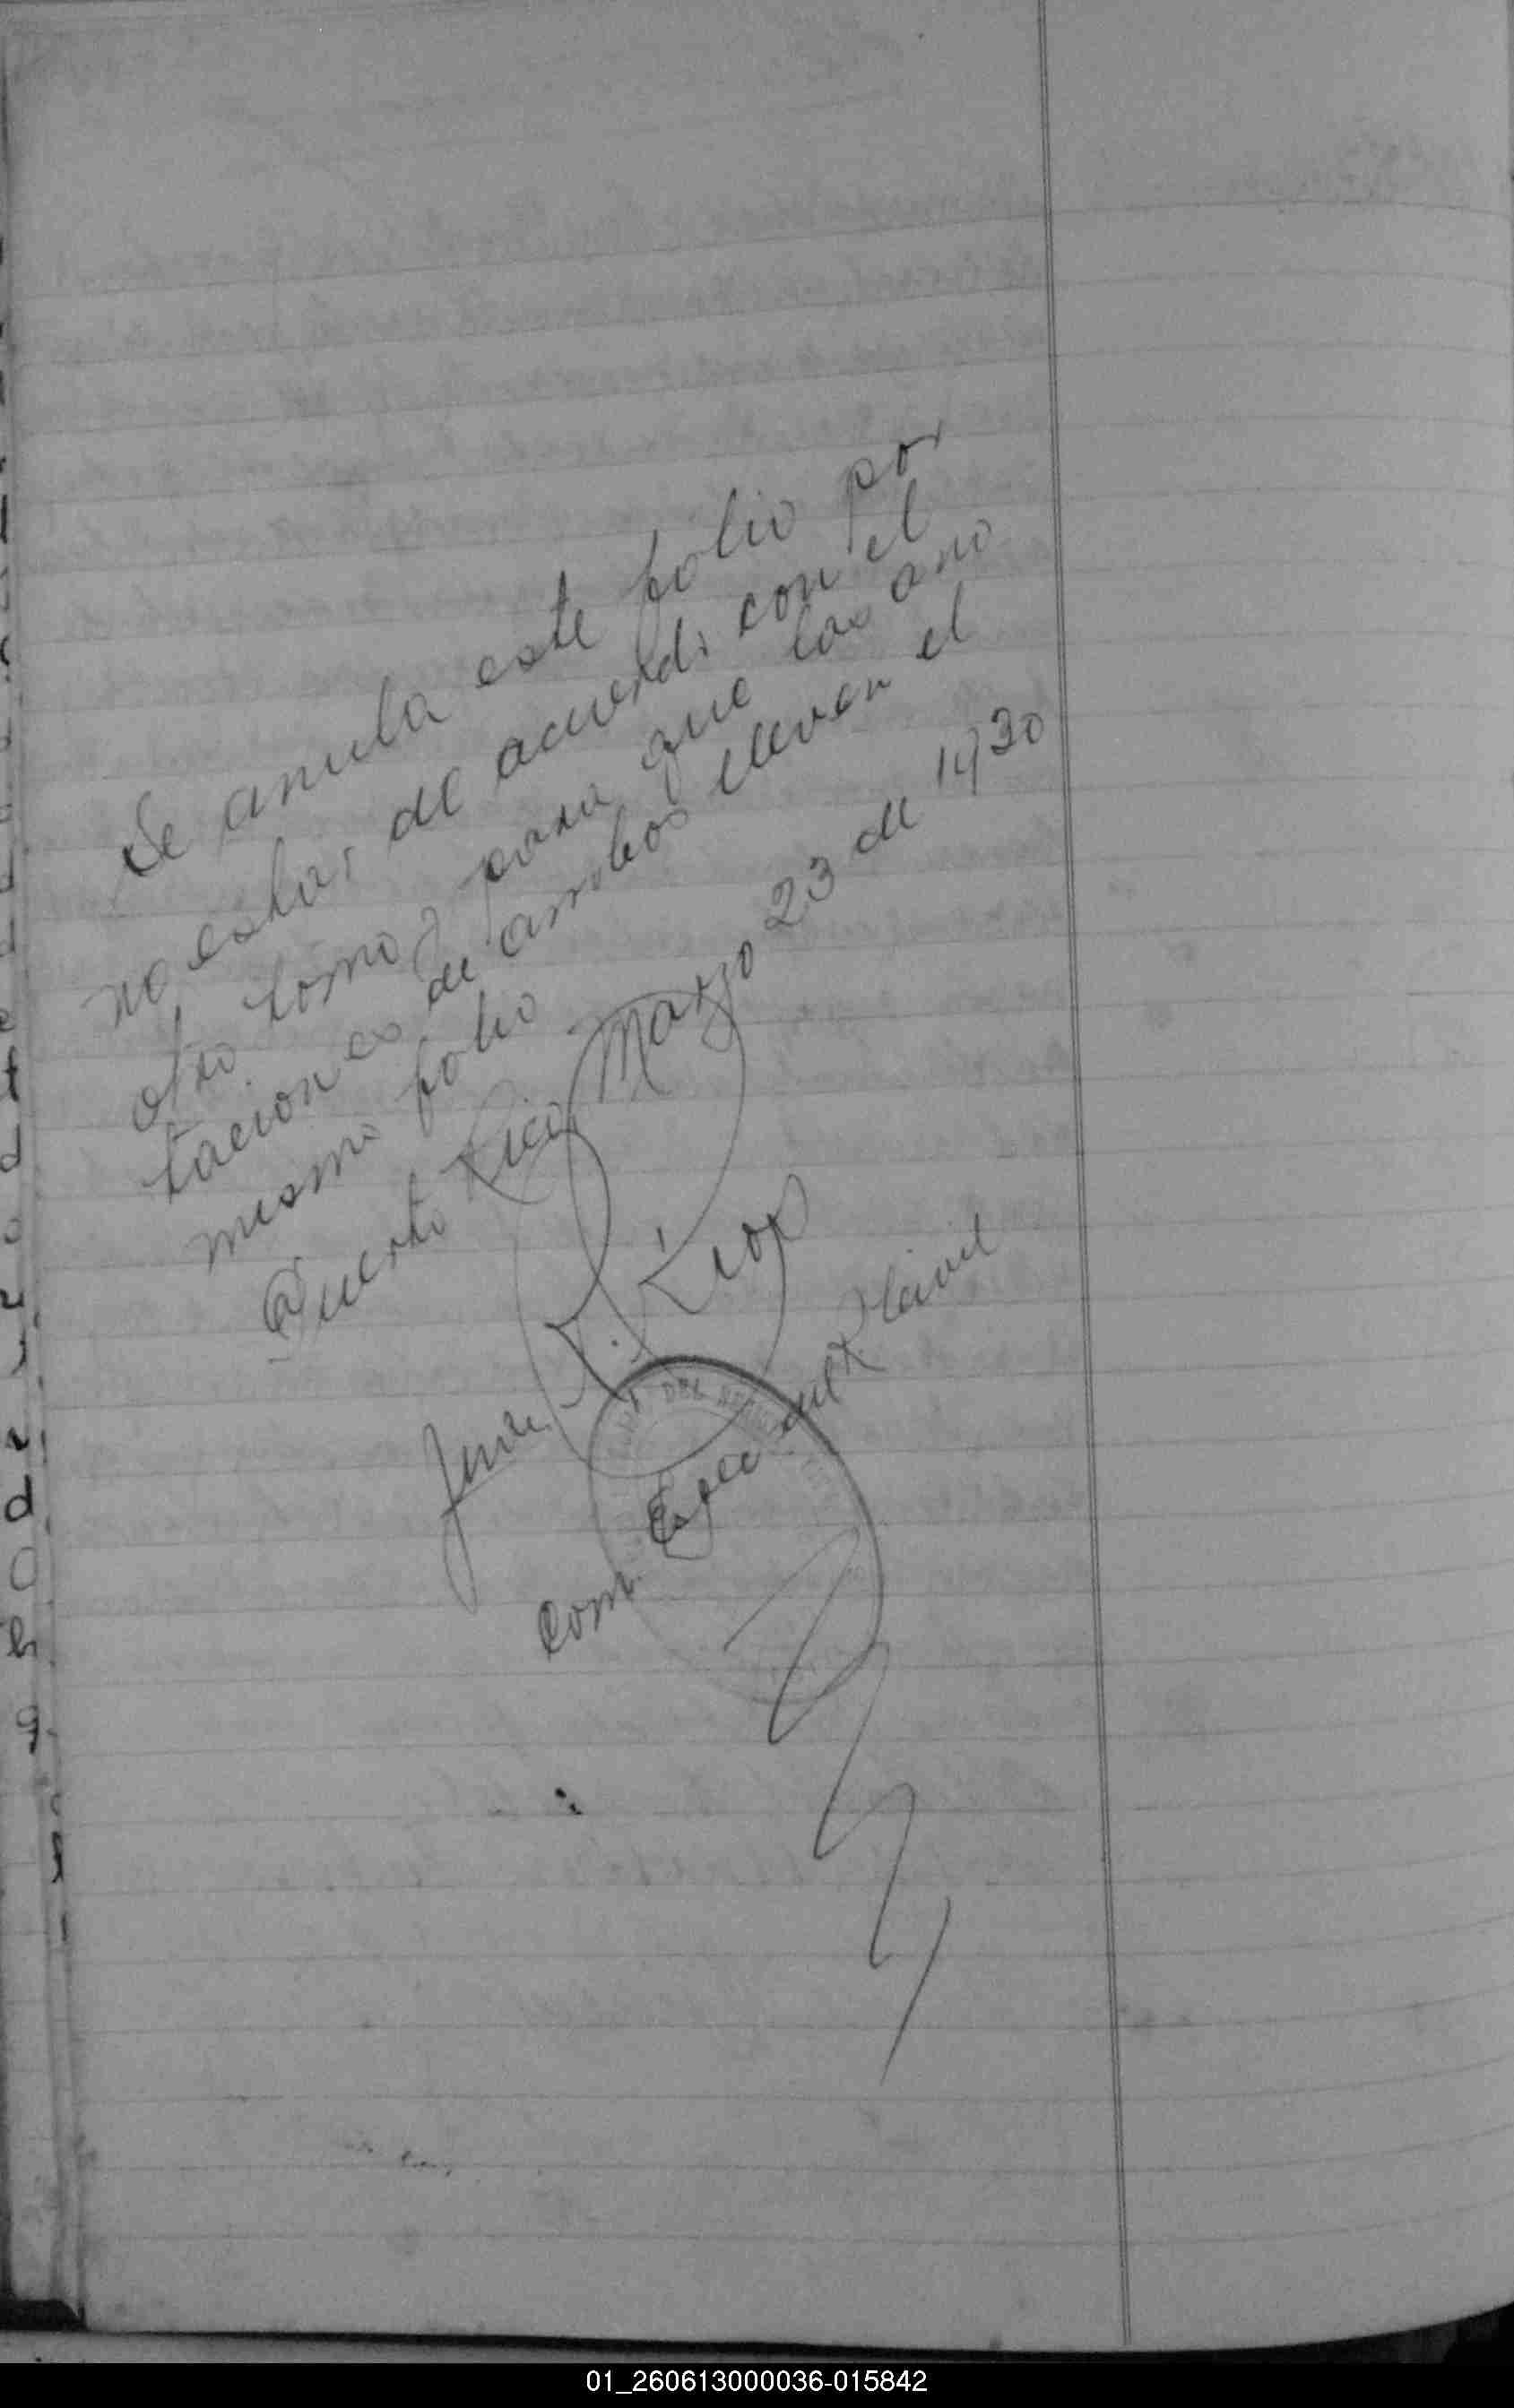 Se anula este folio por
no estar de acuerdo con el
otro tomo y para que las ano
taciones de ambos lleven el
mismo folio
Puerto Rico, Marzo 23 de 1930
J. Rios
Com. Espec del R Civil
DEL
01_260613000036-015842